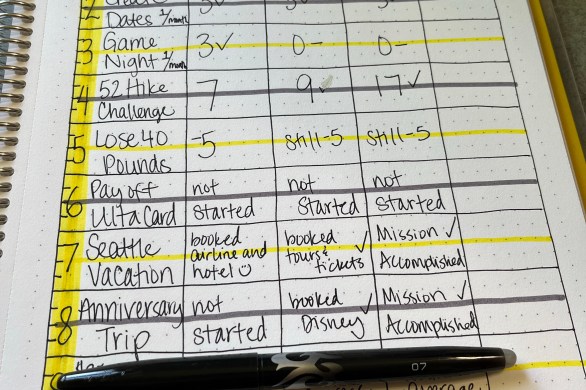 Dates 1/month
3 Game Night 1/month 3✓ 0- 0-
4 52 Hike Challenge 7 9✓ 17✓
5 Lose 40 Pounds -5 still-5 still-5
6 Pay off Ulta Card not started not started not started
7 Seattle Vacation booked airline and hotel☺ booked tours & tickets ✓ Mission Accomplished ✓
8 Anniversary Trip not started booked Disney ✓ Mission Accomplished ✓
07